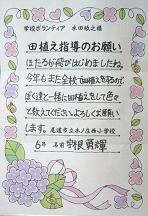 学校ボランティア 水田
田植え指導のお願い
ほたるが飛びはじめましたね。
今年もまた全校で田植えをするので
ぼく達と一緒に田植えをして色々
と教えてくださいよろしくお願い
します。尾道市立木ノ庄西小学校
6年 名前